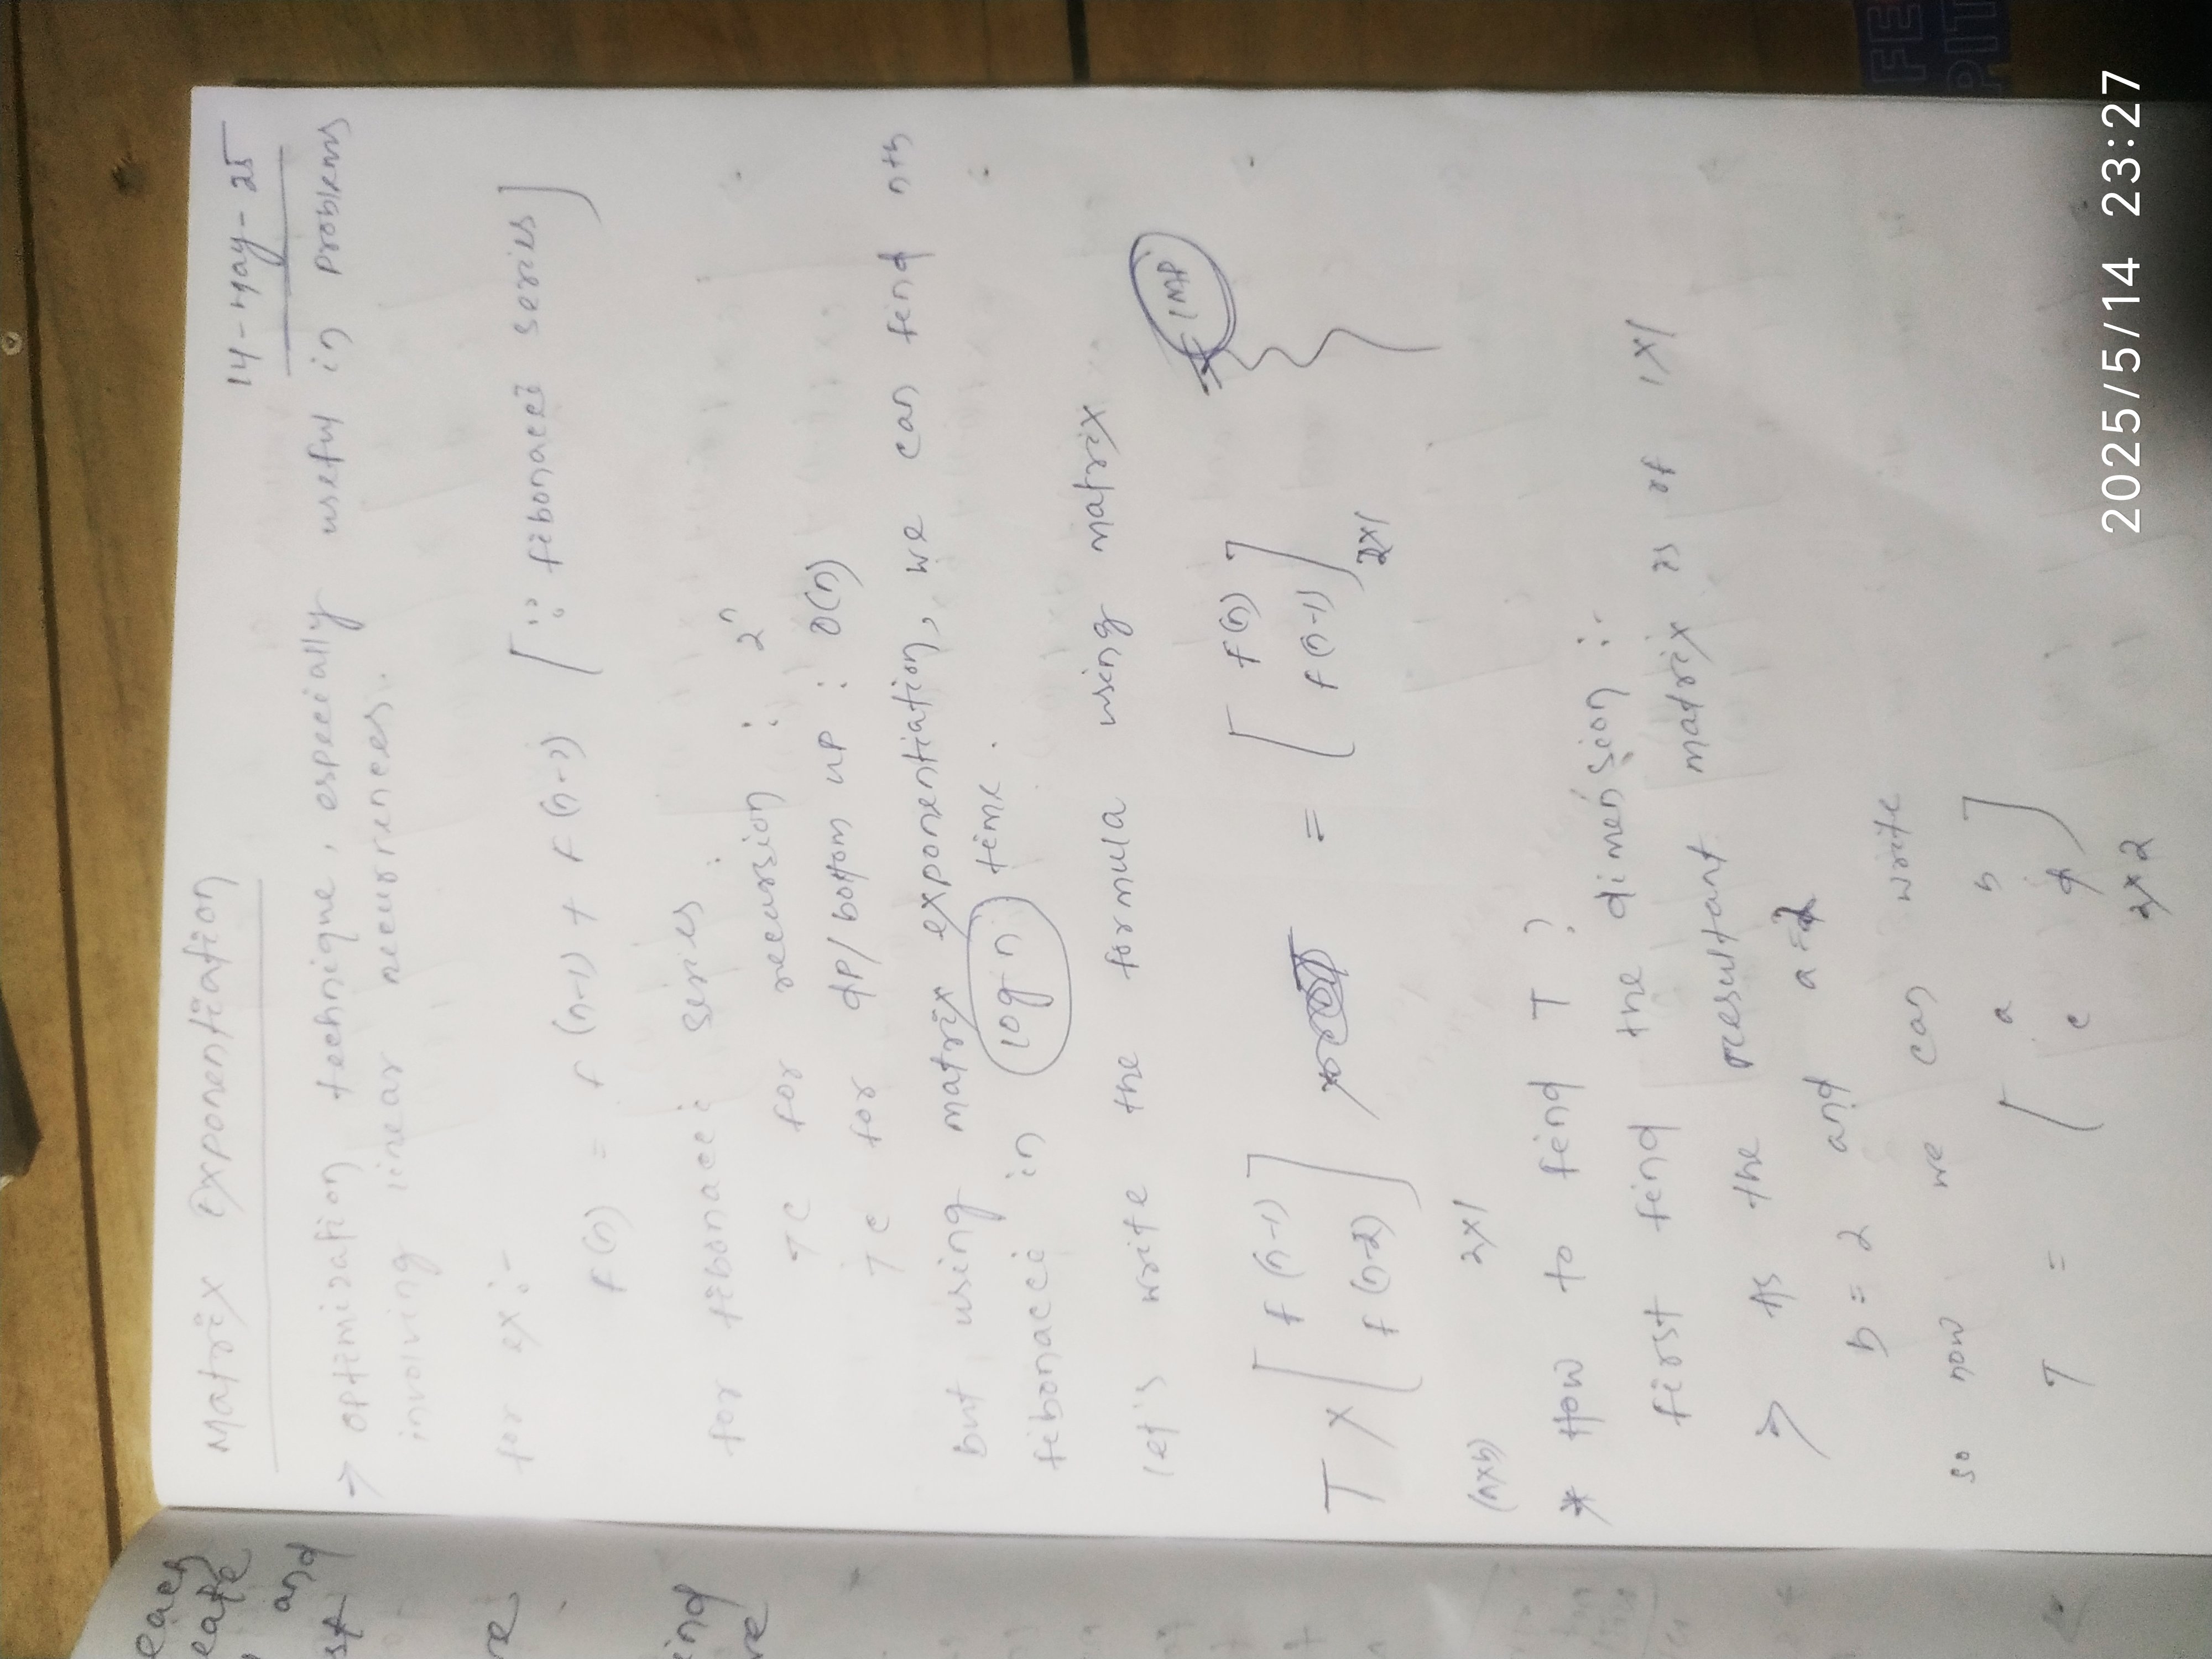 each
eate
and
st
re
ind
re
Matrix Exponentiation
14-May-25
→ optimization technique, especially useful in problems
involving linear recurrences.
for ex:-
f(n) = f(n-1) + f(n-2) [∵ fibonacci series]
for fibonacci series
TC for recursion : 2^n
TC for dp/bottom up : O(n)
But using matrix exponentiation, we can find nth
fibonacci in log n time.
let's write the formula using matrix
IMP
T × [ f(n-1) ] = [ f(n) ]
[ f(n-2) ] [ f(n-1) ] 2×1
(a×b) 2×1
* How to find T ?
first find the dimension :-
> As the resultant matrix is of 1×1
b = 2 and a=2
so now we can write
T = [ a b ]
[ c d ]
2×2
FE
PIT
2025/5/14 23:27